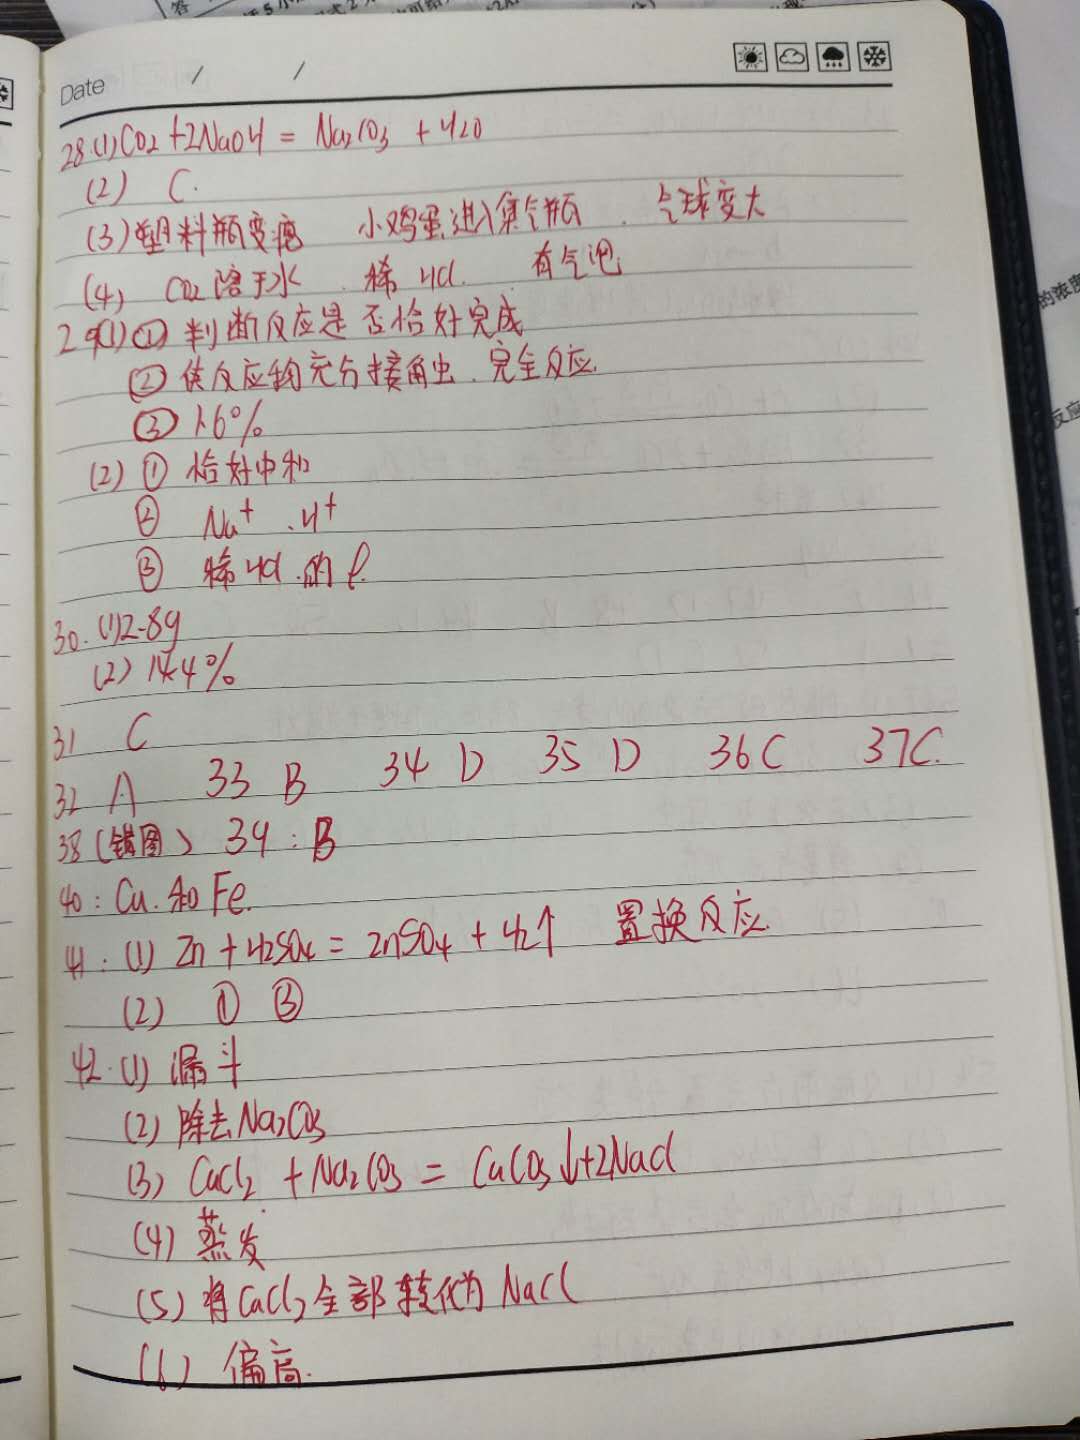 Date / /
28.(1)CO2+2NaOH = Na2CO3 + H2O
(2) C.
(3)塑料瓶变瘪 小鸡蛋进入集气瓶. 气球变大
(4) CO2溶于水. 稀HCl. 有气泡
29(1)① 判断反应是否恰好完成
② 使反应物充分接触,完全反应.
③ 1.6%
(2) ① 恰好中和
② Na+、H+
③ 稀HCl.的
30.(1)2.8g
(2) 14.4%
31 C
32 A 33 B 34 D 35 D 36 C 37 C.
38(错图) 39:B
40:Cu.和Fe.
41:(1) Zn+H2SO4=ZnSO4+H2↑ 置换反应.
(2) ① ③
42.(1) 漏斗
(2) 除去Na2CO3
(3) CaCl2 + Na2CO3 = CaCO3↓+2NaCl
(4) 蒸发
(5) 将CaCl2全部转化为NaCl
(6) 偏高.